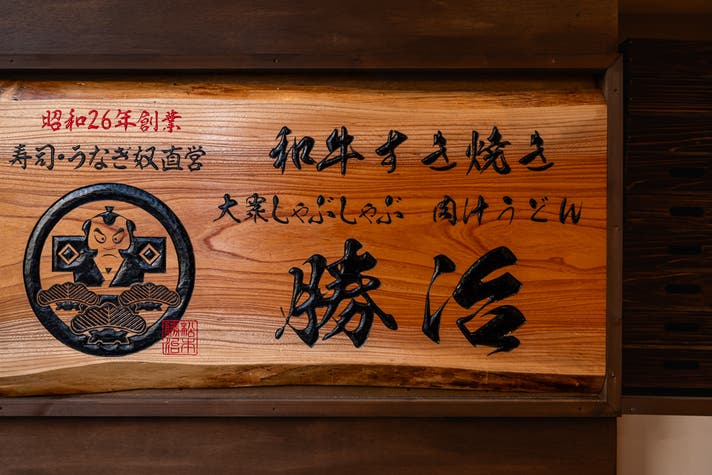 昭和26年創業
寿司・うなぎ奴直営
和牛すき焼き
大衆しゃぶしゃぶ 肉汁うどん
勝治